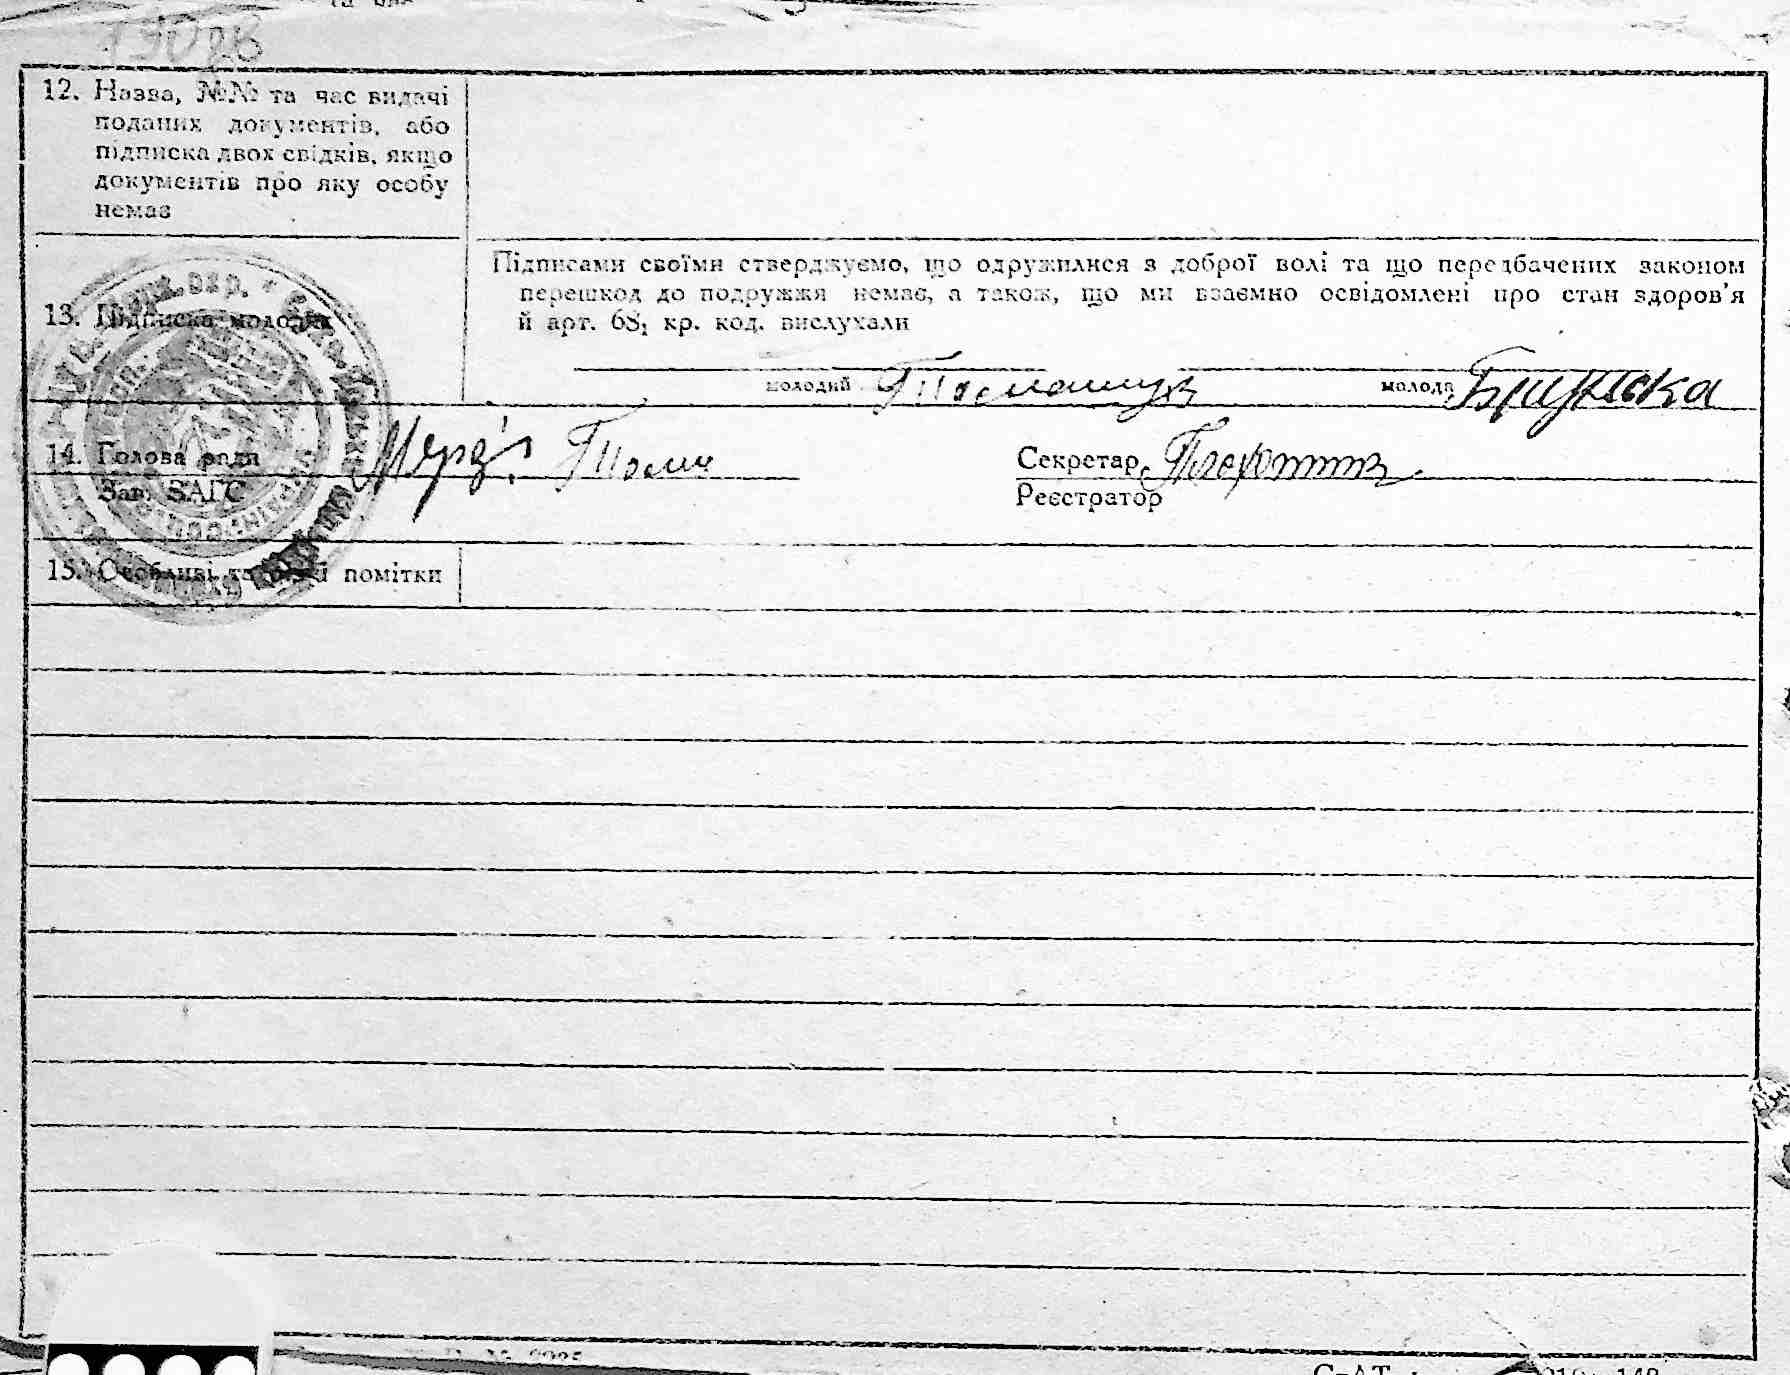 12. Назва, №№ та час видачі
поданих документів, або
підписка двох свідків, якщо
документів про яку особу
немає
Підписами своїми стверджуємо, що одружилися з доброї волі та що передбачених законом
перешкод до подружжя немає, а також, що ми взаємно освідомлені про стан здоров'я
й арт. 68, кр. код. вислухали
13. Підписка молодих
молодий
молода
14. Голова ради
Секретар
Зав. ЗАГС
Реєстратор
15. Особливі та помітки